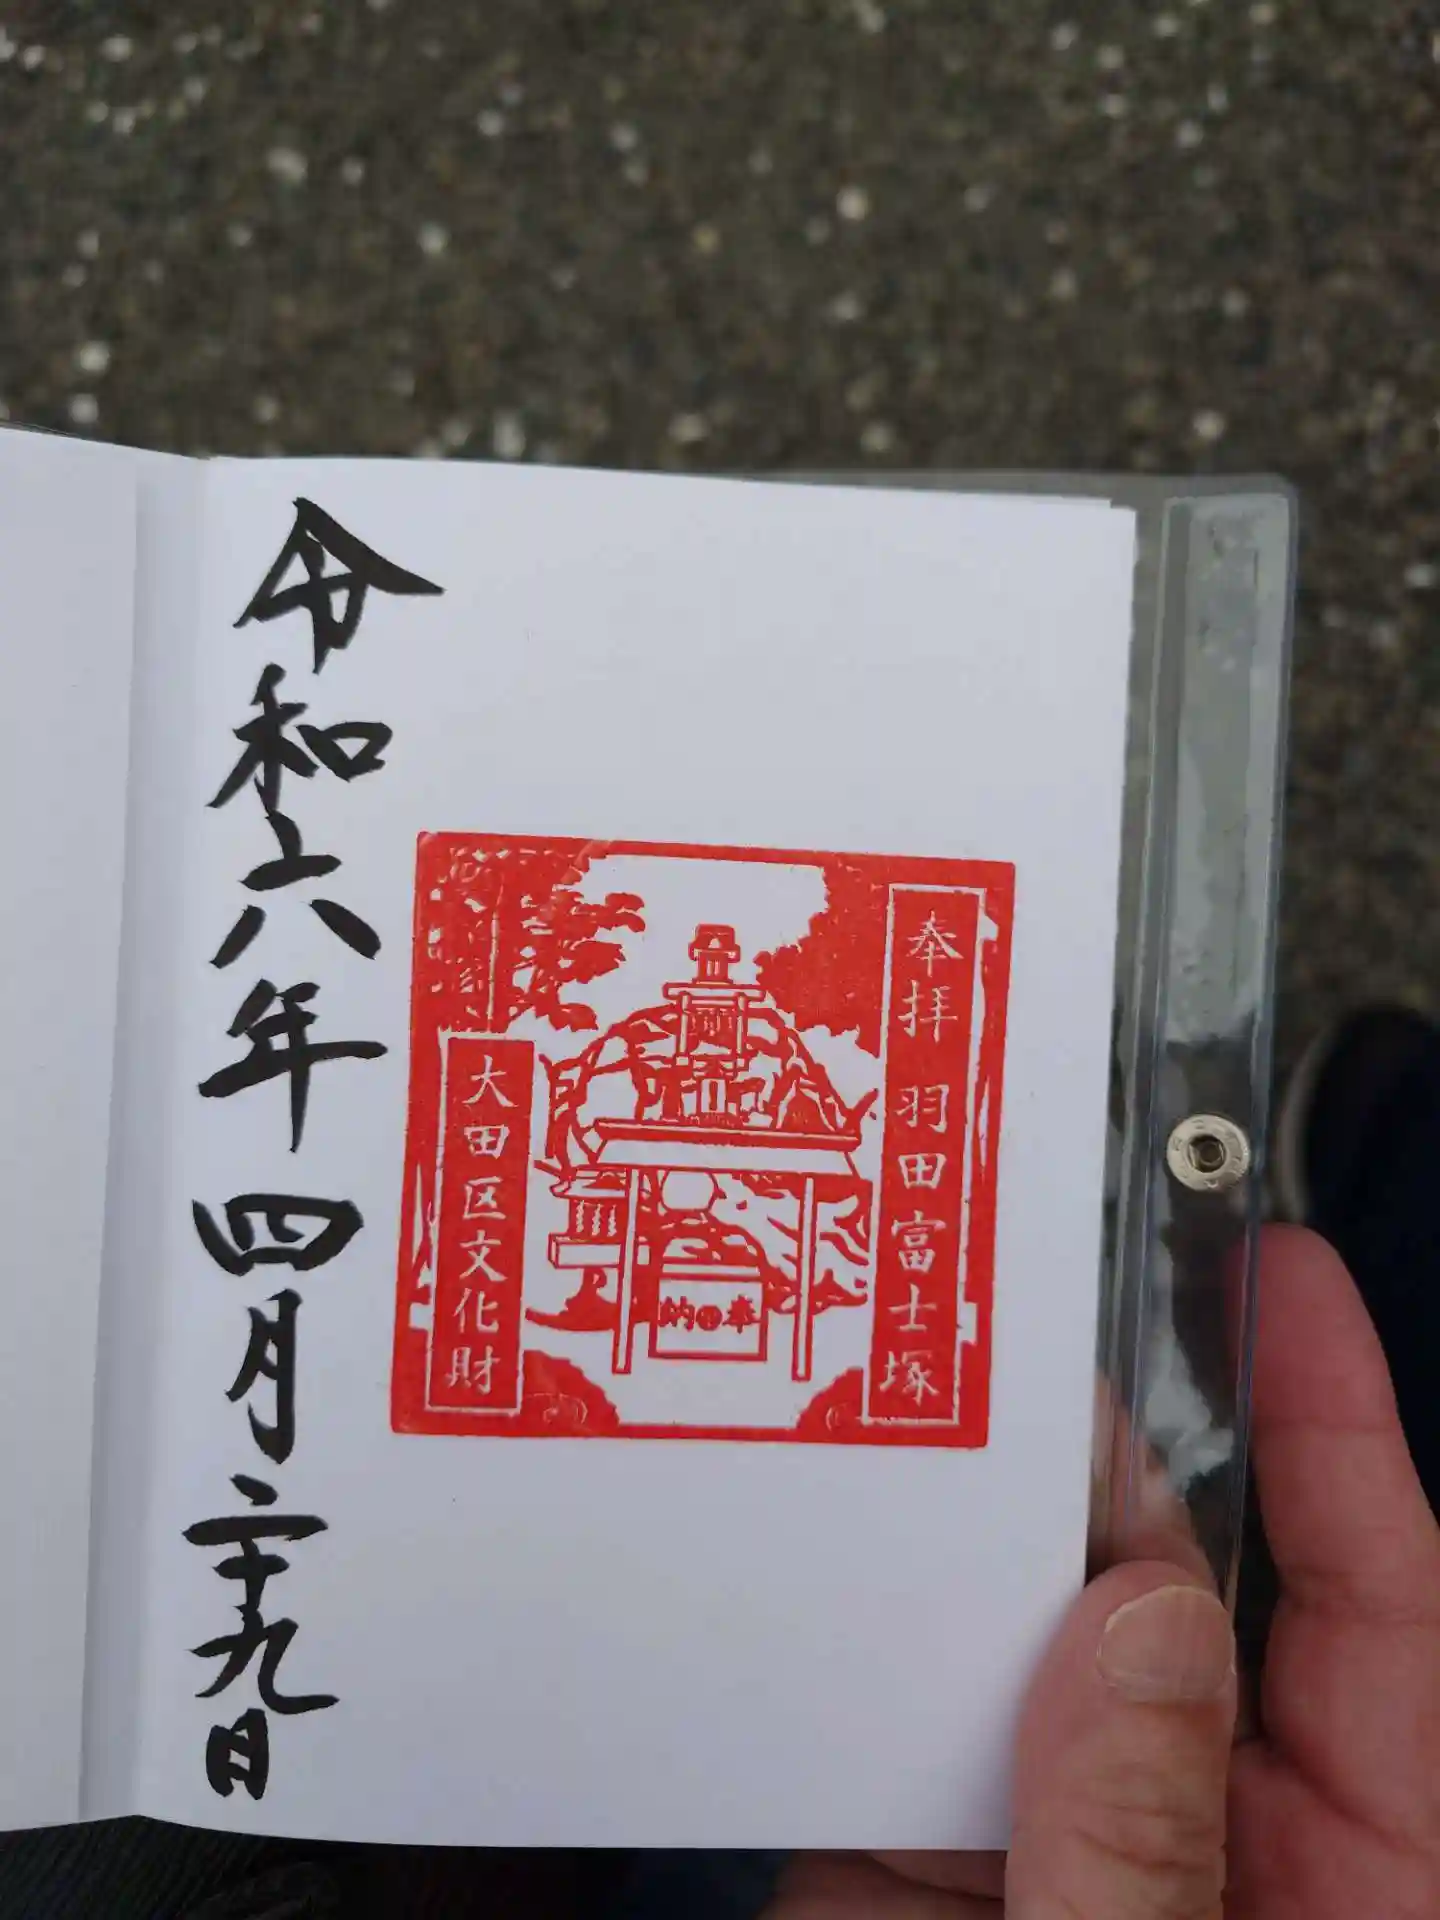 奉拝 羽田富士塚
奉納
大田区文化財
令和六年 四月二十九日